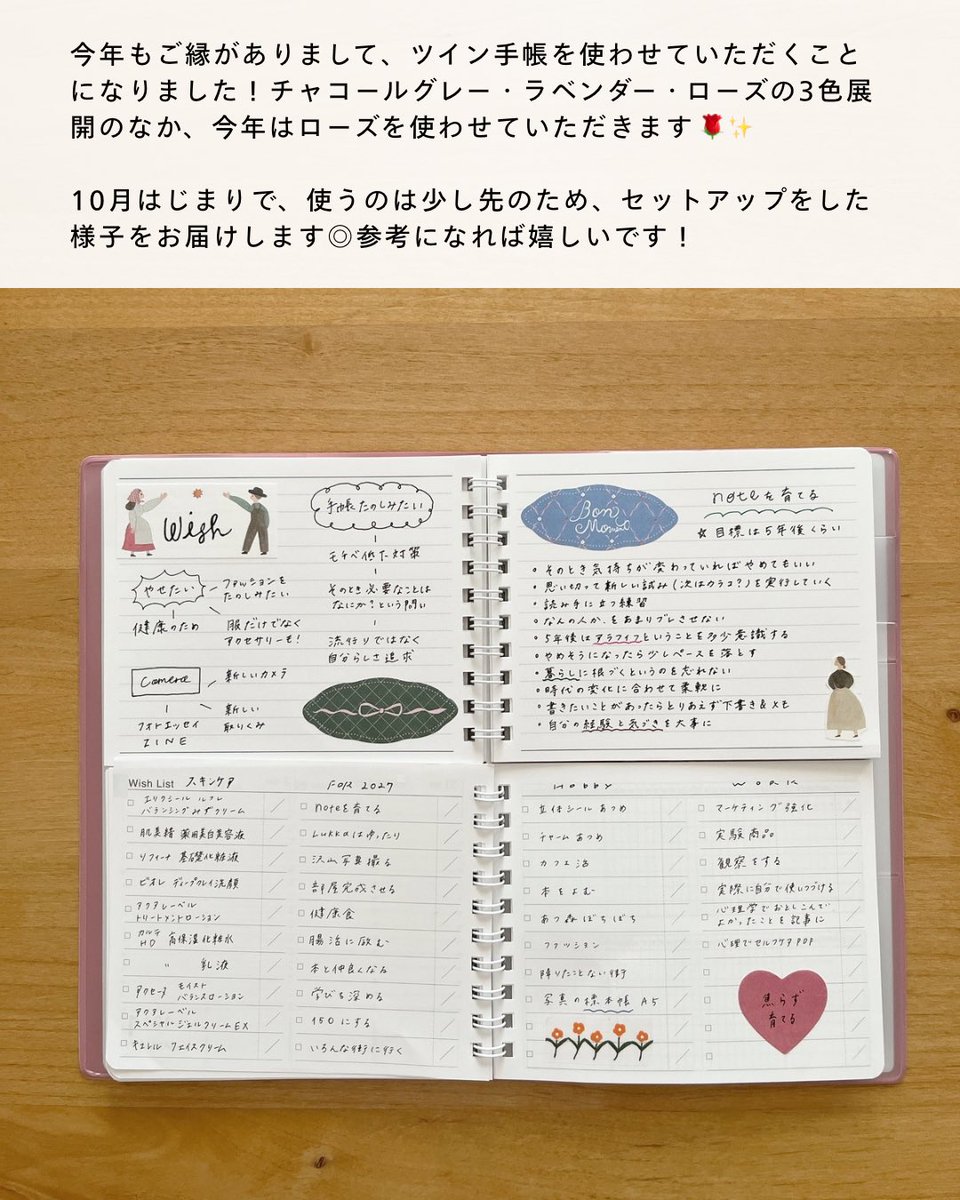 今年もご縁がありまして、ツイン手帳を使わせていただくこと
になりました！チャコールグレー・ラベンダー・ローズの3色展
開のなか、今年はローズを使わせていただきます🌹✨
10月はじまりで、使うのは少し先のため、セットアップをした
様子をお届けします◎参考になれば嬉しいです！
Wish
手帳たのしみたい
モチベ低下対策
そのとき必要なことは
なにか？という問い
流行りではなく
自分らしさ追求
やせたい
ファッションを
たのしみたい
健康のため
服だけでなく
アクセサリーも!
Camera
新しいカメラ
フォトエッセイ
ZINE
新しい
取りくみ
Bon
Moment
noteを育てる
☆目標は5年後くらい
・そのとき気持ちが変わっていればやめてもいい
・思い切って新しい試み(次はカラコ?)を実行していく
・読み手に立つ練習
・なんの人か、をあまりブレさせない
・5年後はアラフィフということを多少意識する
・やめそうになったら少しペースを落とす
・暮らしに根づくというのを忘れない
・時代の変化に合わせて柔軟に
・書きたいことがあったらとりあえず下書き&メモ
・自分の経験と気づきを大事に
Wish List スキンケア
エリクシール ルフレ
バランシングみずクリーム
肌美精 薬用美白美容液
リフィーナ 基礎化粧液
ビオレ ディープクレイ洗顔
アクアレーベル
トリートメントローション
カルテ
HD 高保湿化粧水
〃 乳液
アクセーヌ モイスト
バランスローション
アクアレーベル
スペシャルジェルクリームEX
キュレル フェイスクリーム
FOR 2027
noteを育てる
Lukkaはゆったり
沢山写真撮る
部屋完成させる
健康食
腸活に励む
本と仲良くなる
学びを深める
150にする
いろんな街に行く
HOBBY
立体シールあつめ
チャームあつめ
カフェ活
本をよむ
あつ森ぼちぼち
ファッション
降りたことない街
写真の標本帳 A5
WORK
マーケティング強化
実験商品
観察をする
実際に自分で使いつづける
心理学でおとしこんで
よかったことを記事に
心理でセルフケアPDP
焦らず
育てる